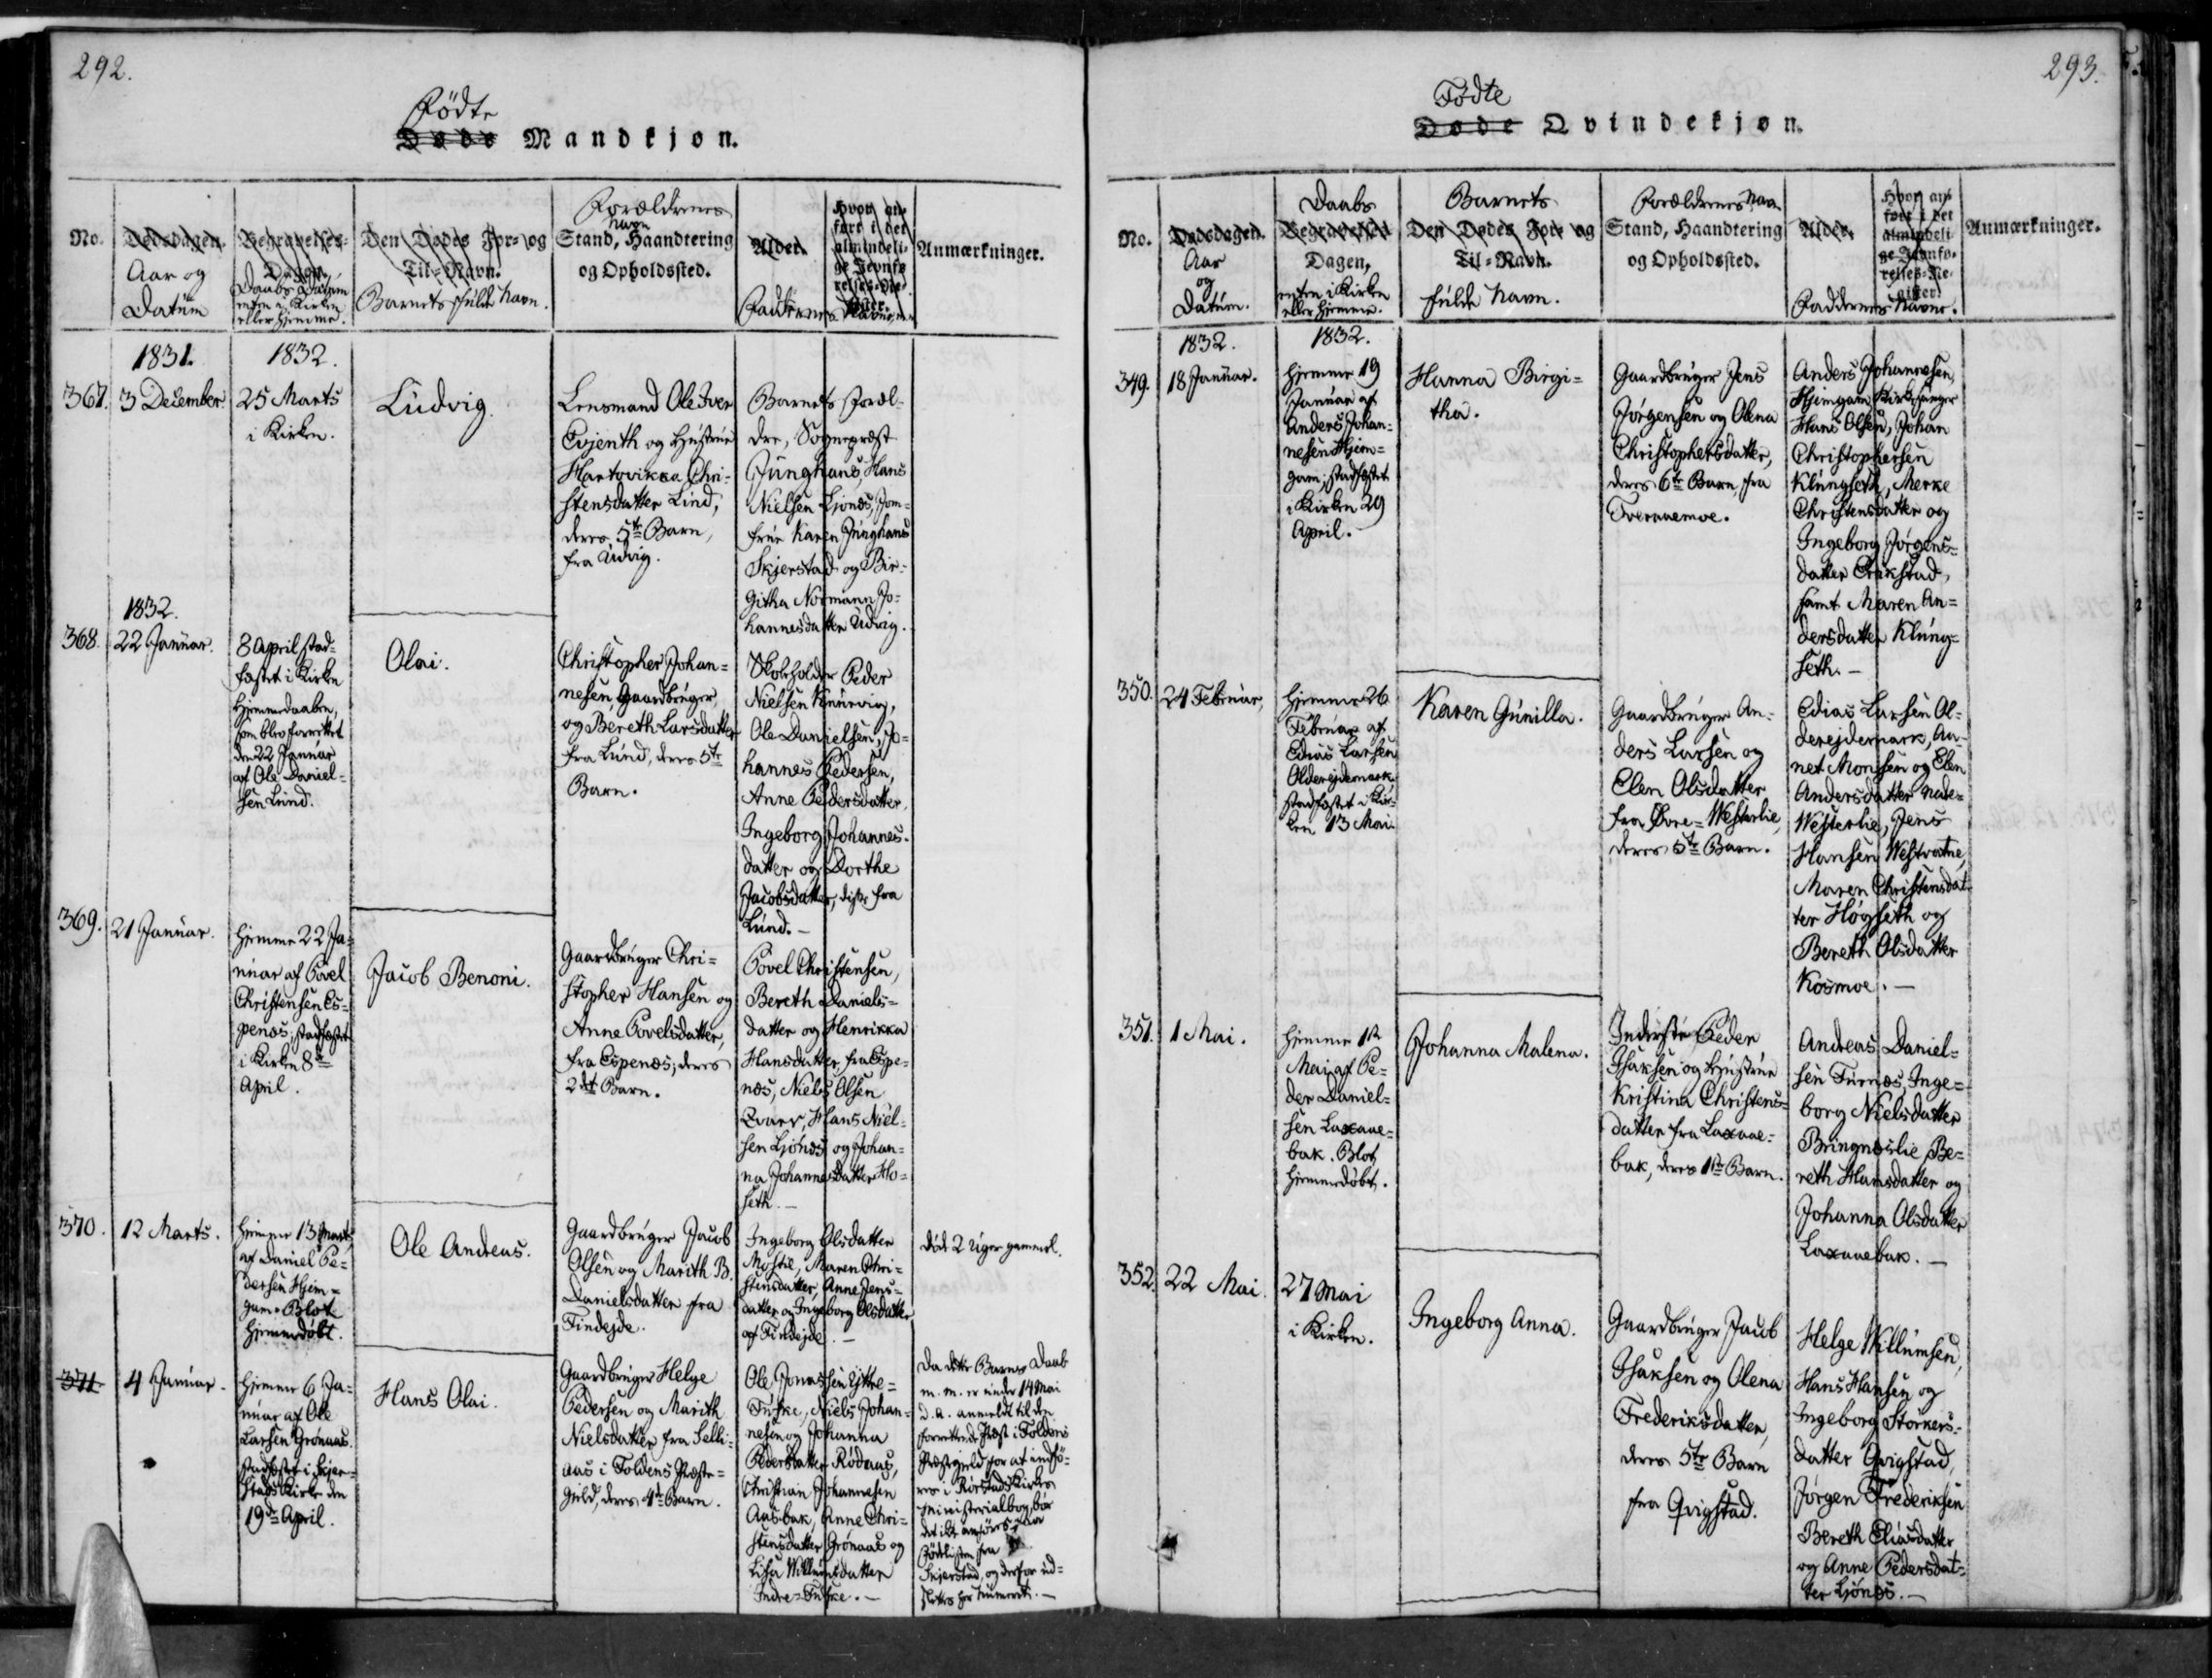 292.
Fødte
Døde Mandkjøn.
No.
Dødsdagen.
Aar og
Datum
Begravelses-
Dagen,
Daabs Datum
enten i Kirken
eller hjemme.
Den Dødes For- og
Til-Navn.
Barnets fulde Navn.
Forældrenes
Navn
Stand, Haandtering
og Opholdssted.
Alder.
Hvor an-
ført i det
almindeli-
ge Jevnfø-
relses-Re-
gister.
Faddernes Navne
Anmærkninger.
1831.
1832.
367.
3 December
25 Marts
i Kirken.
Ludvig.
Lensmand Ole Iver
Evjenth og Hustrue
Hartvikka Chri-
stensdatter Lind,
deres 5te Barn,
fra Udvig.
Barnets Foræl-
dre, Sognepræst
Junghans, Hans
Nielsen Ljønæs, Jom-
frue Karen Junghans
Skjerstad og Bir-
githa Normann Jo-
hannesdatter Udvig.
1832.
368.
22 Januar.
8 April stad-
fæstet i Kirken
Hjemmedaaben,
som blev forrettet
den 22 Januar
af Ole Daniel-
sen Lund.
Olai.
Christopher Johan-
nesen, Gaardbruger,
og Bereth Larsdatter
fra Lund, deres 5te
Barn.
Skoleholder Peder
Nielsen
Ole Danielsen, Jo-
hannes Pedersen,
Anne Pedersdatter,
Ingeborg Johannes-
datter og Dorthe
Jacobsdatter, disse fra
Lund.-
369.
21 Januar.
hjemme 22 Ja-
nuar af Povel
Christensen Es-
penæs; stadfæstet
i Kirken 8de
April.
Jacob Benoni.
Gaardbruger Chri-
stopher Hansen og
Anne Povelsdatter,
fra Espenæs; deres
2det Barn.
Povel Christensen,
Bereth Daniels-
datter og Henrikka
Hansdatter, fra Espe-
næs, Niels Olsen
Hans Niel-
sen Ljønæs og Johan-
na Johannesdatter Ho-
seth.-
370.
12 Marts.
hjemme 13 Marts
af Daniel Pe-
dersen Hjem-
gam. Blot
hjemmedøbt.
Ole Andreas.
Gaardbruger Jacob
Olsen og Marith B.
Danielsdatter fra
Findejde.
Ingeborg Olsdatter
Mostie, Maren Chri-
stensdatter, Anne Jens-
datter og Ingeborg Olsdatter
af Findejde.-
død 2 Uger gammel.
371.
4 Januar.
hjemme 6 Ja-
nuar af Ole
Larsen Grønaas.
stadfæstet i Skjer-
stad Kirke den
19de April.
Hans Olai.
Gaardbruger Helge
Pedersen og Marith
Nielsdatter fra Selli-
aas i Foldens Præste-
gjeld, deres 4de Barn.
Ole Jonassen Yttre-
Fuske, Niels Johan-
nesen og Johanna
Pedersdatter Rødaas,
Christian Johannesen
Aasbak, Anne Chri-
stensdatter Grønaas og
Lisa Willumsdatter
Indre-Fuske.-
Da dette Barns Daab
m. m. er under 14 Mai
d. A. anmeldt til den
forrettende Præst i Foldens
Præstegjeld for at indfø-
res i Rørstads Kirkes
Ministerialbog, bør
det ikke anføres
Fødelisten fra
Skjerstad, og derfor ud-
slettes her Numeret.-
293.
Fødte
Døde Qvindekjøn.
No.
Dødsdagen.
Aar
og
Datum.
Daabs
Begravelses-
Dagen,
enten i Kirken
eller hjemme.
Barnets
Den Dødes For- og
Til-Navn.
fulde Navn.
Forældrenes Navn
Stand, Haandtering
og Opholdssted.
Alder.
Hvor an-
ført i det
almindeli-
ge Jevnfø-
relses-Re-
gister.
Faddernes Navne.
Anmærkninger.
1832.
1832.
349.
18 Januar.
hjemme 19
Januar af
Anders Johan-
nesen Hjem-
gam; stadfæstet
i Kirken 29
April.-
Hanna Birgi-
tha.
Gaardbruger Jens
Jørgensen og Olena
Christophersdatter,
deres 6te Barn, fra
Tveraaemoe.
Anders Johannesen,
Hjemgam Kirkesanger
Hans Olsen, Johan
Christophersen
Klungseth, Merre
Christensdatter og
Ingeborg Jørgens-
datter Erikstad,
samt Maren An-
dersdatter Klung-
seth.-
350.
24 Februar,
hjemme 26
Februar af
Edias Larsen
Olderejdemark.
stadfæstet i Kir-
ken 13 Mai.
Karen Gunilla.
Gaardbruger An-
ders Larsen og
Elen Olsdatter
fra Øvre-Westerlie,
deres 5te Barn.
Edias Larsen Ol-
derejdemark, An-
net Monssen og Elen
Andersdatter Nede-
Westerlie, Jens
Hansen Westvatne,
Maren Christensdat-
ter Høgseth og
Bereth Olsdatter
Kosmoe.-
351.
1 Mai.
hjemme 1ste
Mai af Pe-
der Daniel-
sen Laxaae-
bak. Blot
hjemmedøbt.
Johanna Malena.
Inderste Peder
Isaksen og Hustrue
Kristina Christens-
datter fra Laxaae-
bak, deres 1ste Barn.
Andreas Daniel-
sen Furnæs, Inge-
borg Nielsdatter
Bringneslie, Be-
reth Hansdatter og
Johanna Olsdatter
Laxaaebak.-
352.
22 Mai.
27 Mai
i Kirken.
Ingeborg Anna.
Gaardbruger Jacob
Isaksen og Olena
Frederiksdatter,
deres 5te Barn
fra Qvigstad.
Helge Willumsen,
Hans Hansen og
Ingeborg Størkers-
datter Qvigstad,
Jørgen Frederiksen
Bereth Eliasdatter
og Anne Pedersdat-
ter Ljønæs.-